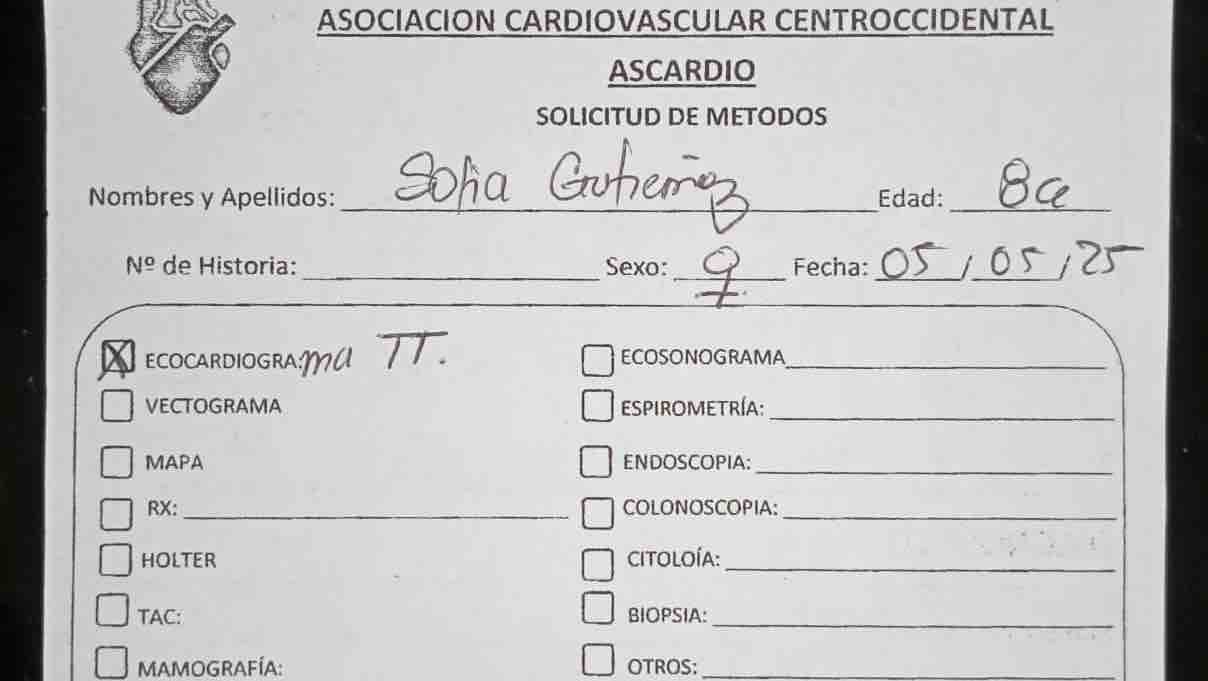 ASOCIACION CARDIOVASCULAR CENTROCCIDENTAL
ASCARDIO
SOLICITUD DE METODOS
Nombres y Apellidos: Sofia Gutierrez Edad: 8a
Nº de Historia: Sexo: ♀ Fecha: 05/05/25
ECOCARDIOGRAMA TT. ECOSONOGRAMA
VECTOGRAMA ESPIROMETRÍA:
MAPA ENDOSCOPIA:
RX: COLONOSCOPIA:
HOLTER CITOLOÍA:
TAC: BIOPSIA:
MAMOGRAFÍA: OTROS: